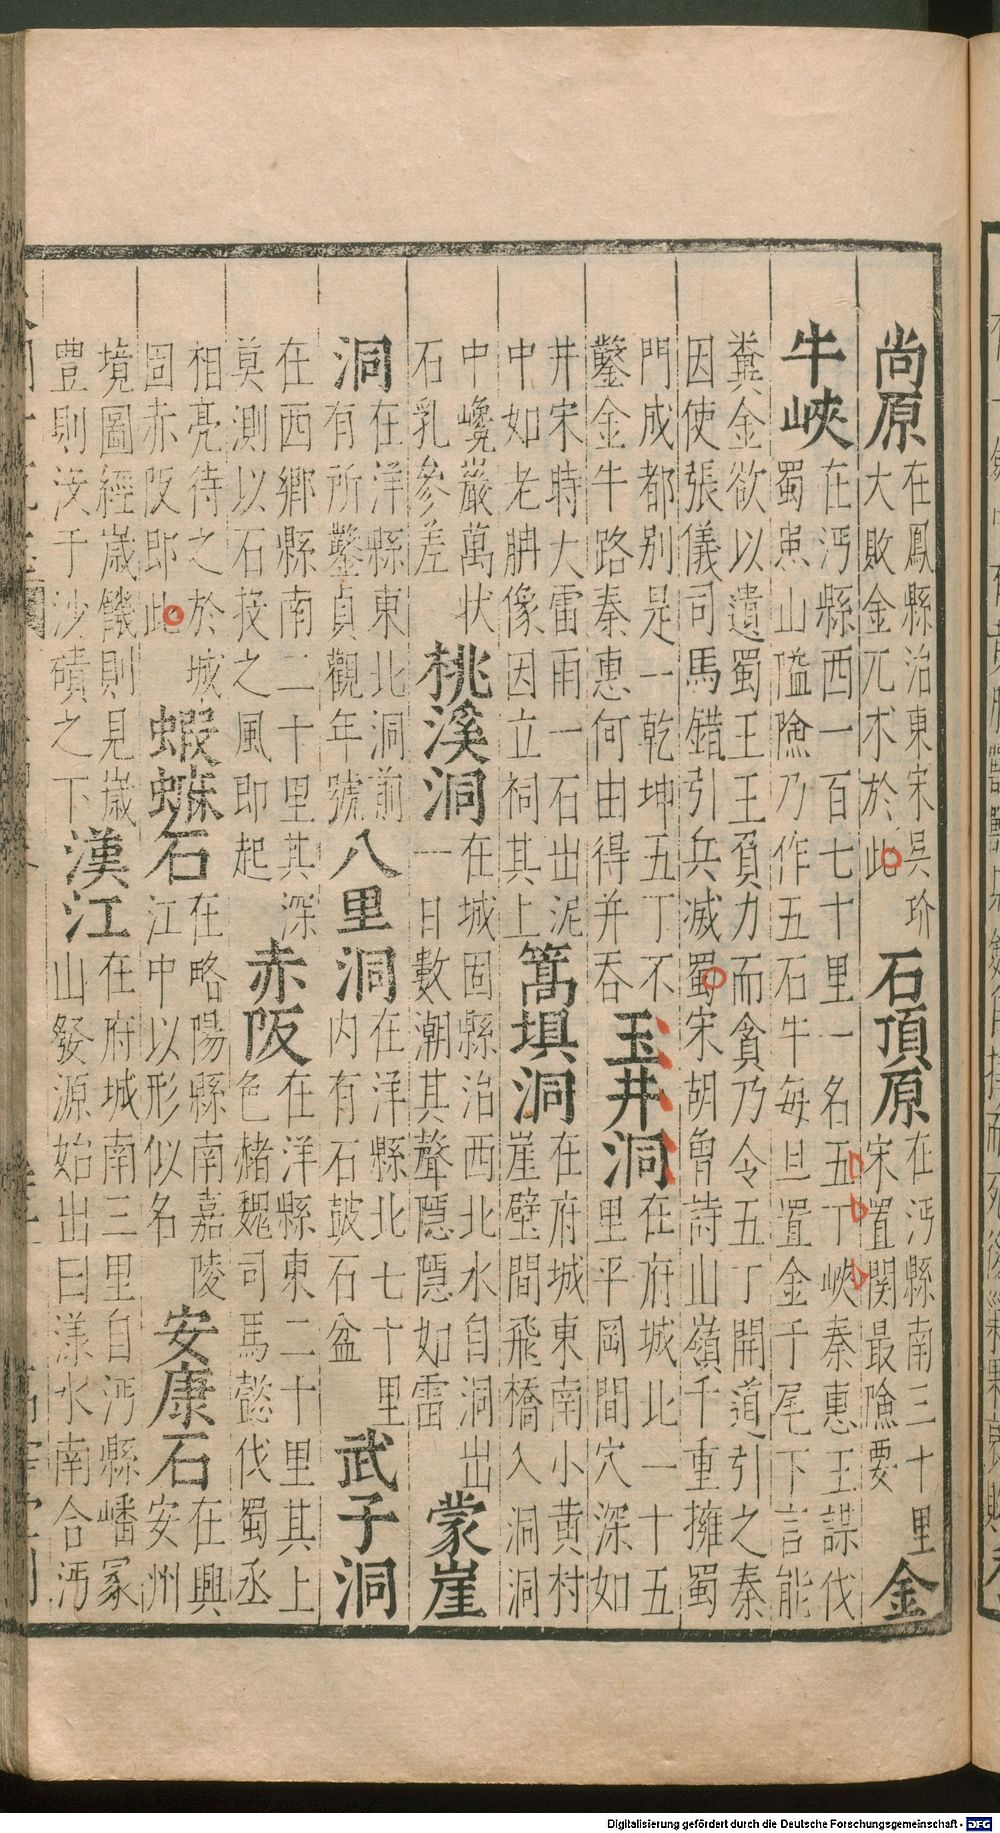 尚原在鳳縣治東宋吳玠大敗金兀朮於此石頂原在沔縣南三十里宋置関最險要金
牛峽在沔縣西一百七十里一名五丁峽秦惠王謀伐蜀患山隘險乃作五石牛每旦置金千尾下言能
糞金欲以遺蜀王王負力而貪乃令五丁開道引之秦因使張儀司馬錯引兵滅蜀宋胡曾詩山嶺千重擁蜀
門成都别是一乾坤五丁不鑿金牛路秦惠何由得并吞玉井洞在府城北一十五里平岡間穴深如
井宋時大雷雨一石出泥中如老像因立祠其上篙埧洞在府城東南小黄村崖壁間飛橋入洞洞
中巉巖萬状石乳參差桃溪洞在城固縣治西北水自洞出一日數潮其聲隱隱如雷蒙崖
洞在洋縣東北洞前有所鑿貞觀年號八里洞在洋縣北七十里内有石皷石盆武子洞
在西鄉縣南二十里其深莫測以石投之風即起赤阪在洋縣東二十里其上色赭魏司馬懿伐蜀丞
相亮待之於城固赤阪即此蝦蟆石在略陽縣南嘉陵江中以形似名安康石在興安州
境圖經歳饑則見歳豊則没于沙磧之下漢江在府城南三里自沔縣嶓冢山發源始出曰漾水南合沔
Digitalisierung gefördert durch die Deutsche Forschungsgemeinschaft - DFG